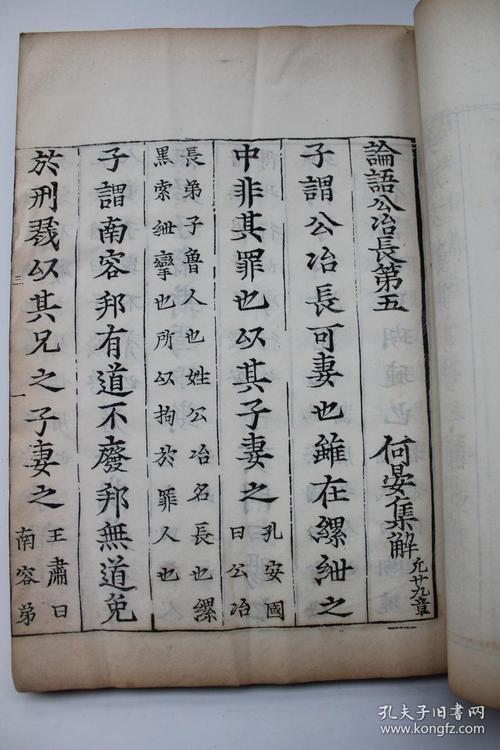 論語公冶長第五 何晏集解 凢廿九章
子謂公冶長可妻也雖在縲紲之
中非其罪也以其子妻之 孔安國
曰公冶
長弟子魯人也姓公冶名長也縲
黑索紲攣也所以拘於罪人也
子謂南容邦有道不廢邦無道免
於刑戮以其兄之子妻之 王肅曰
南容弟
三 一
孔夫子旧书网
kongfz.com